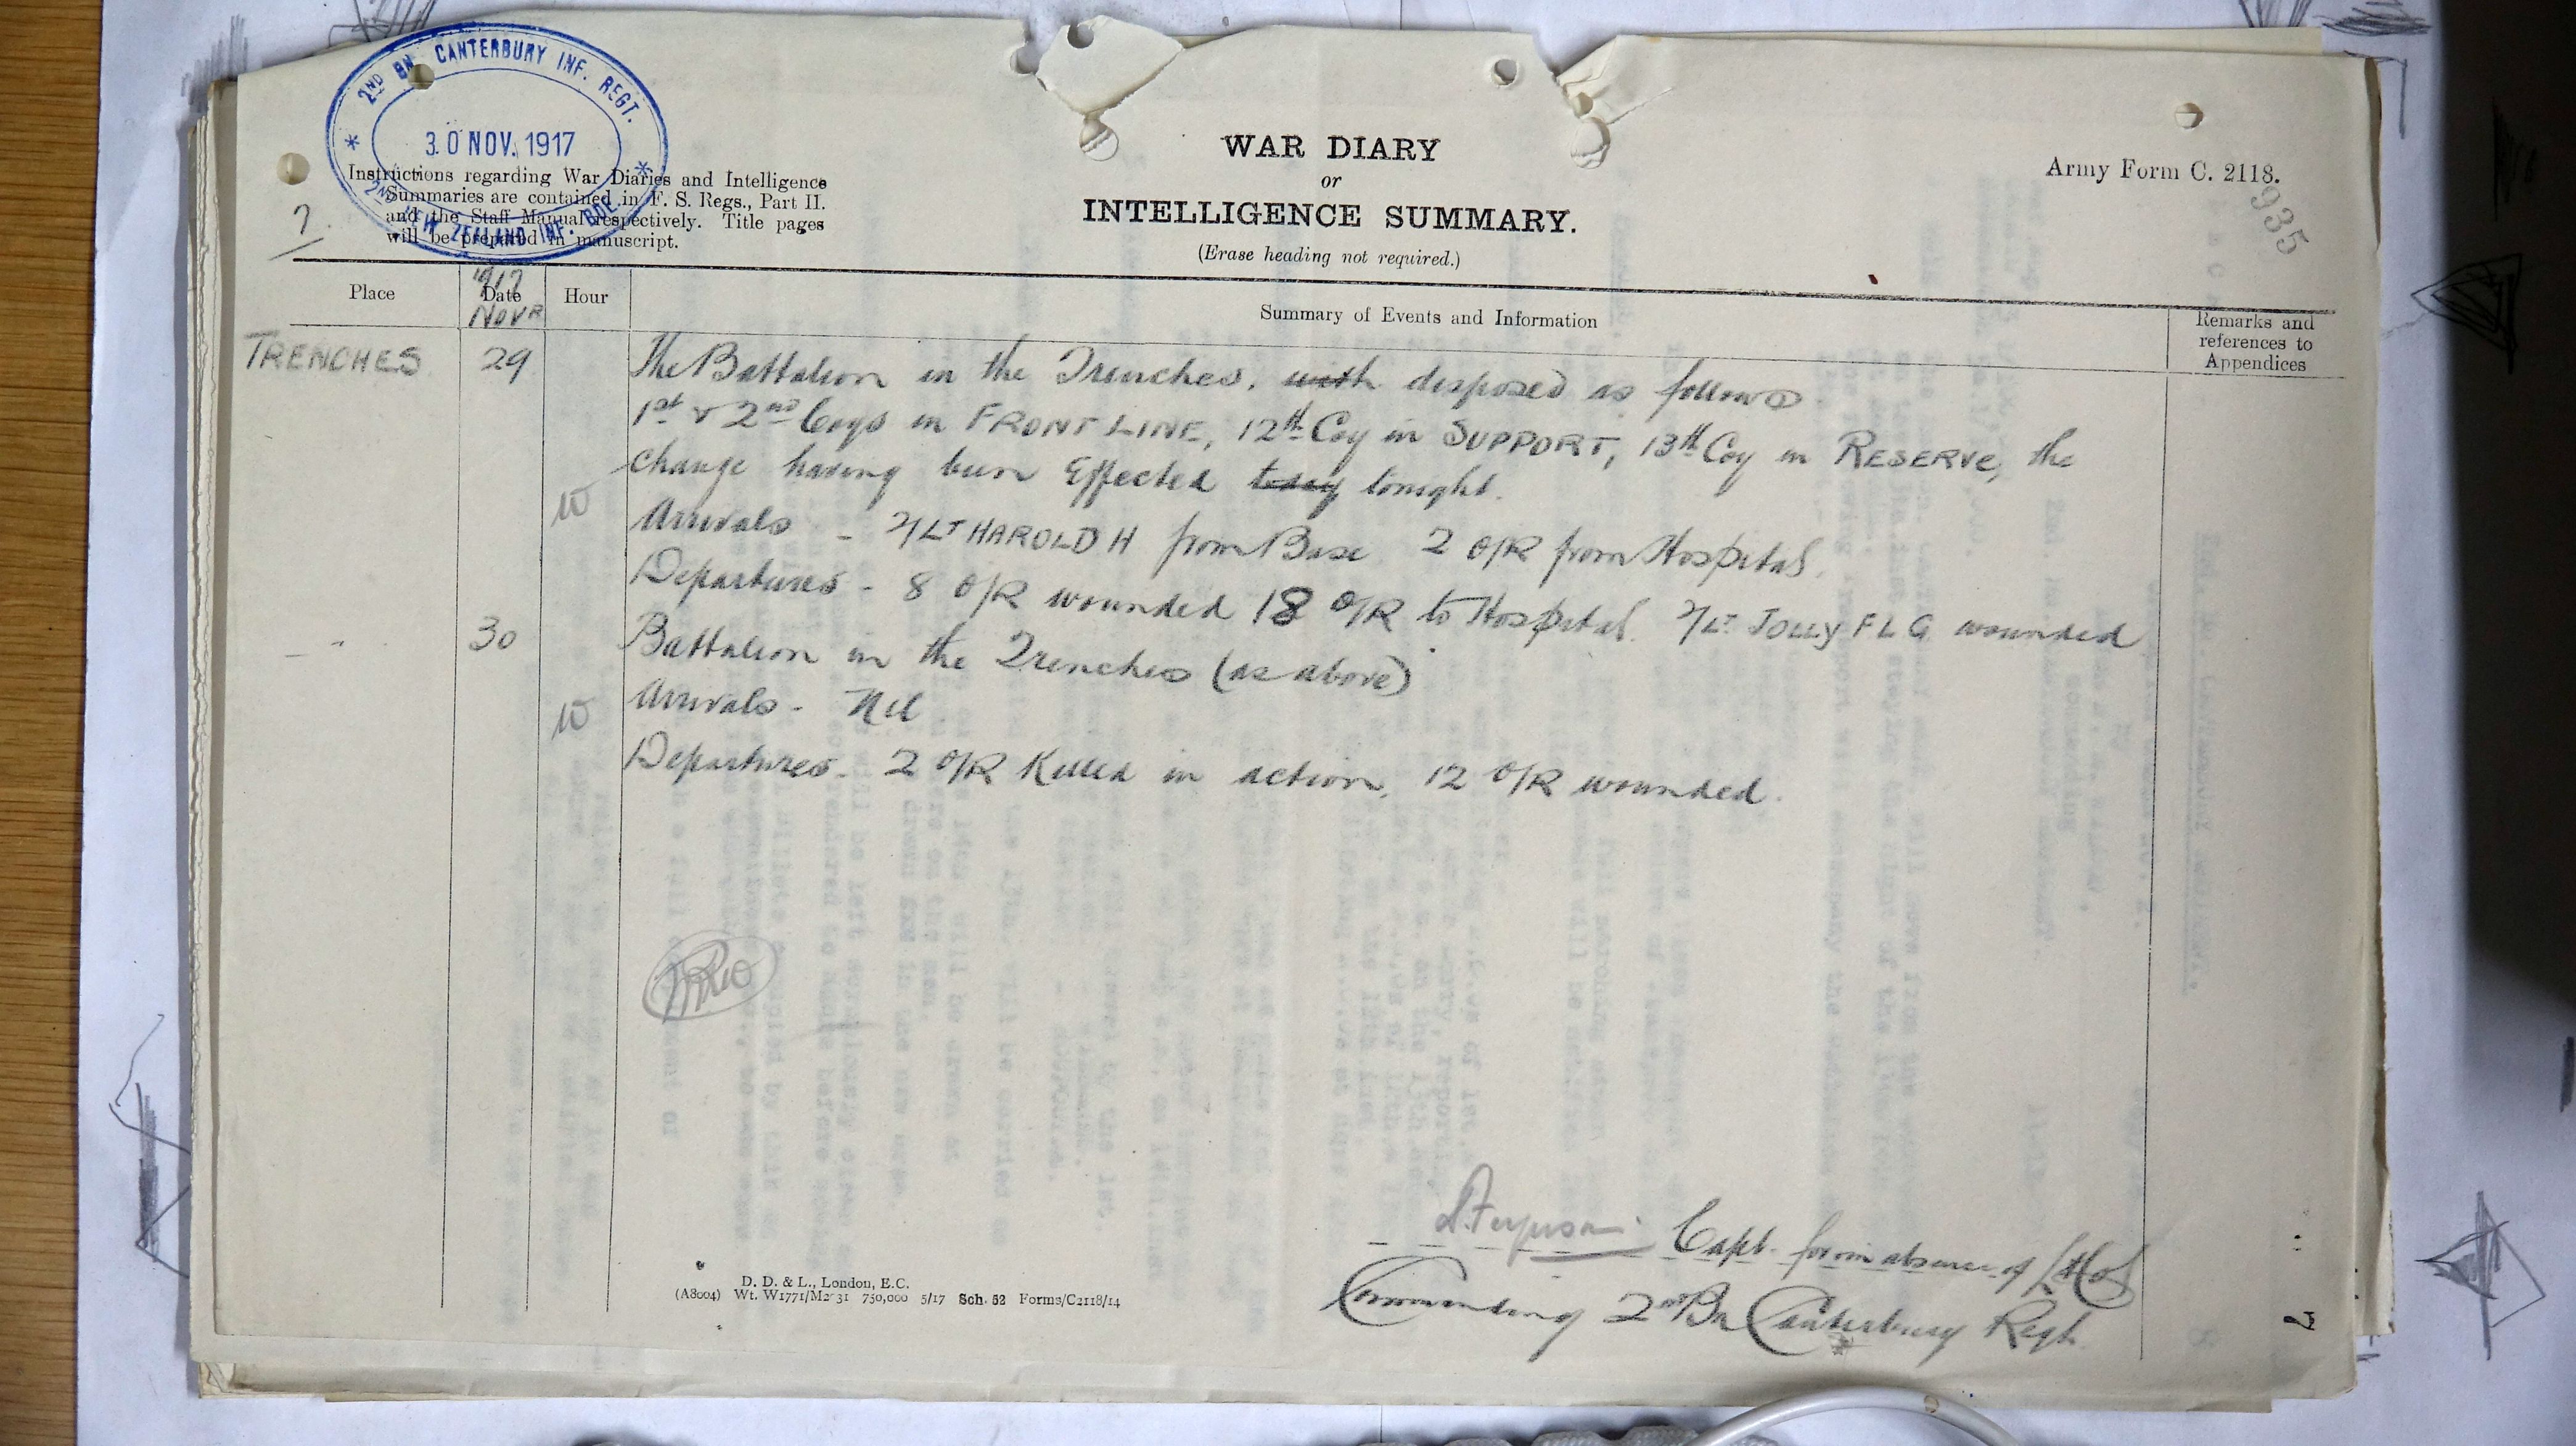 2ND BN. CANTERBURY INF. REGT.
30 NOV. 1917
2ND N. ZEALAND INF. BDE.
Instructions regarding War Diaries and Intelligence
Summaries are contained in F. S. Regs., Part II.
and the Staff Manual respectively. Title pages
will be prepared in manuscript.
7.
WAR DIARY
or
INTELLIGENCE SUMMARY.
(Erase heading not required.)
Army Form C. 2118.
935
Place
1917
Date
NOVR
Hour
Summary of Events and Information
Remarks and
references to
Appendices
TRENCHES 29 The Battalion in the Trenches. with disposed as follows
1st & 2nd Coys in FRONT LINE, 12th Coy in SUPPORT, 13th Coy in RESERVE, the
change having been Effected today tonight.
Arrivals - 2/LT HAROLD H from Base 2 O/R from Hospital.
Departures - 8 O/R wounded 18 O/R to Hospital. 2/LT. JOLLY F L G wounded
- " - 30 Battalion in the Trenches (as above)
Arrivals - Nil
Departures - 2 O/R Killed in action, 12 O/R wounded.
Ferguson Capt. for in absence of Lt Col
Commanding 2nd Bn Canterbury Regt.
D. D. & L., London, E.C.
(A8004) Wt. W1771/M2 31 750,000 5/17 Sch. 52 Forms/C2118/14